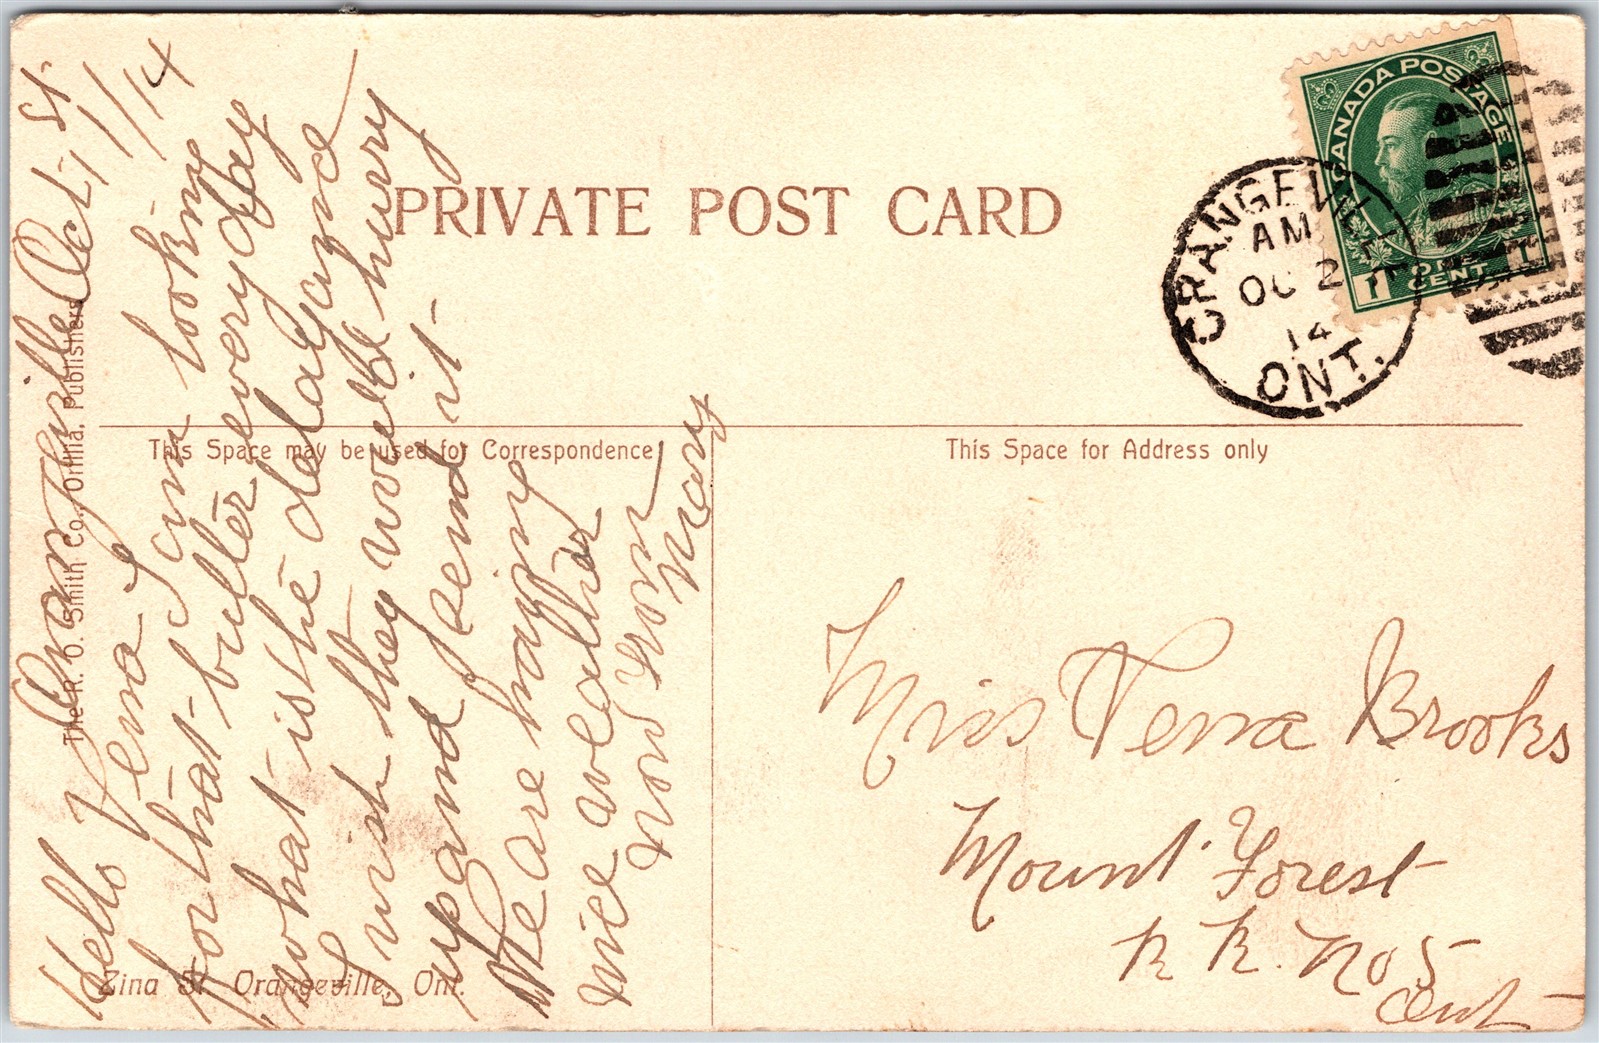 PRIVATE POST CARD
CANADA POSTAGE
ONE
CENT
1 1
ORANGEVILLE
AM
OC 2
14
ONT.
This Space may be used for Correspondence
This Space for Address only
The R. O. Smith Co., Orillia, Publishers
Zina St. Orangeville, Ont.
Orangeville Oct, 1/14
Hello Vema I am looking
for that butter every day
what is the delayance
I wish they would hurry
up and send it
We are having
nice weather
now from
Mary
Miss Vema Brooks
Mount Forest
R R. No 5
Ont